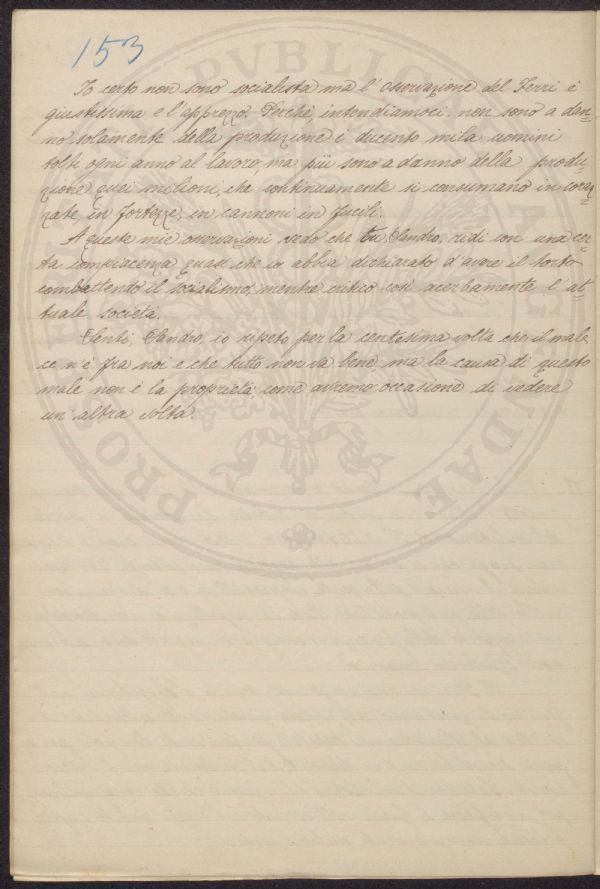 153
Io certo non sono socialista ma l'osservazione del Ferri è
giustissima e l'apprezzo. Perchè, intendiamoci, non sono a dan-
no solamente della produzione i ducento mila uomini
tolti ogni anno al lavoro, ma più sono a danno della produ-
zione quei milioni, che continuamente si consumano in coraz-
zate, in fortezze, in cannoni in fucili.
A queste mie osservazioni vedo che tu Sandro, ridi con una cer-
ta compiacenza quasi che io abbia dichiarato d'avere il torto
combattendo il socialismo, mentre critico così acerbamente l'at-
tuale società.
Senti, Sandro, io ripeto per la centesima volta che il male
ce n'è fra noi e che tutto non va bene, ma la causa di questo
male non è la proprietà come avremo occasione di vedere
un'altra volta.
PVBLICA
FIDAE
PRO